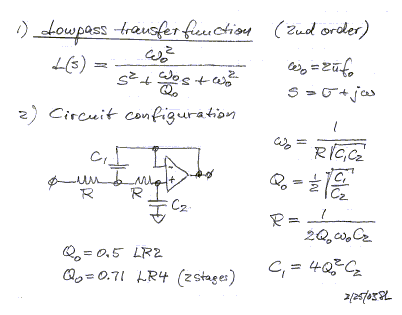 1) Lowpass transfer function (2nd order)
L(s) = ω₀² / (s² + (ω₀/Q₀)s + ω₀²)
ω₀ = 2πf₀
s = σ + jω
2) Circuit configuration
C₁
R R
- +
C₂
ω₀ = 1 / (R√(C₁C₂))
Q₀ = 1/2 √(C₁/C₂)
R = 1 / (2Q₀ω₀C₂)
C₁ = 4Q₀²C₂
Q₀ = 0.5 LR2
Q₀ = 0.71 LR4 (2 stages)
2/25/03SL